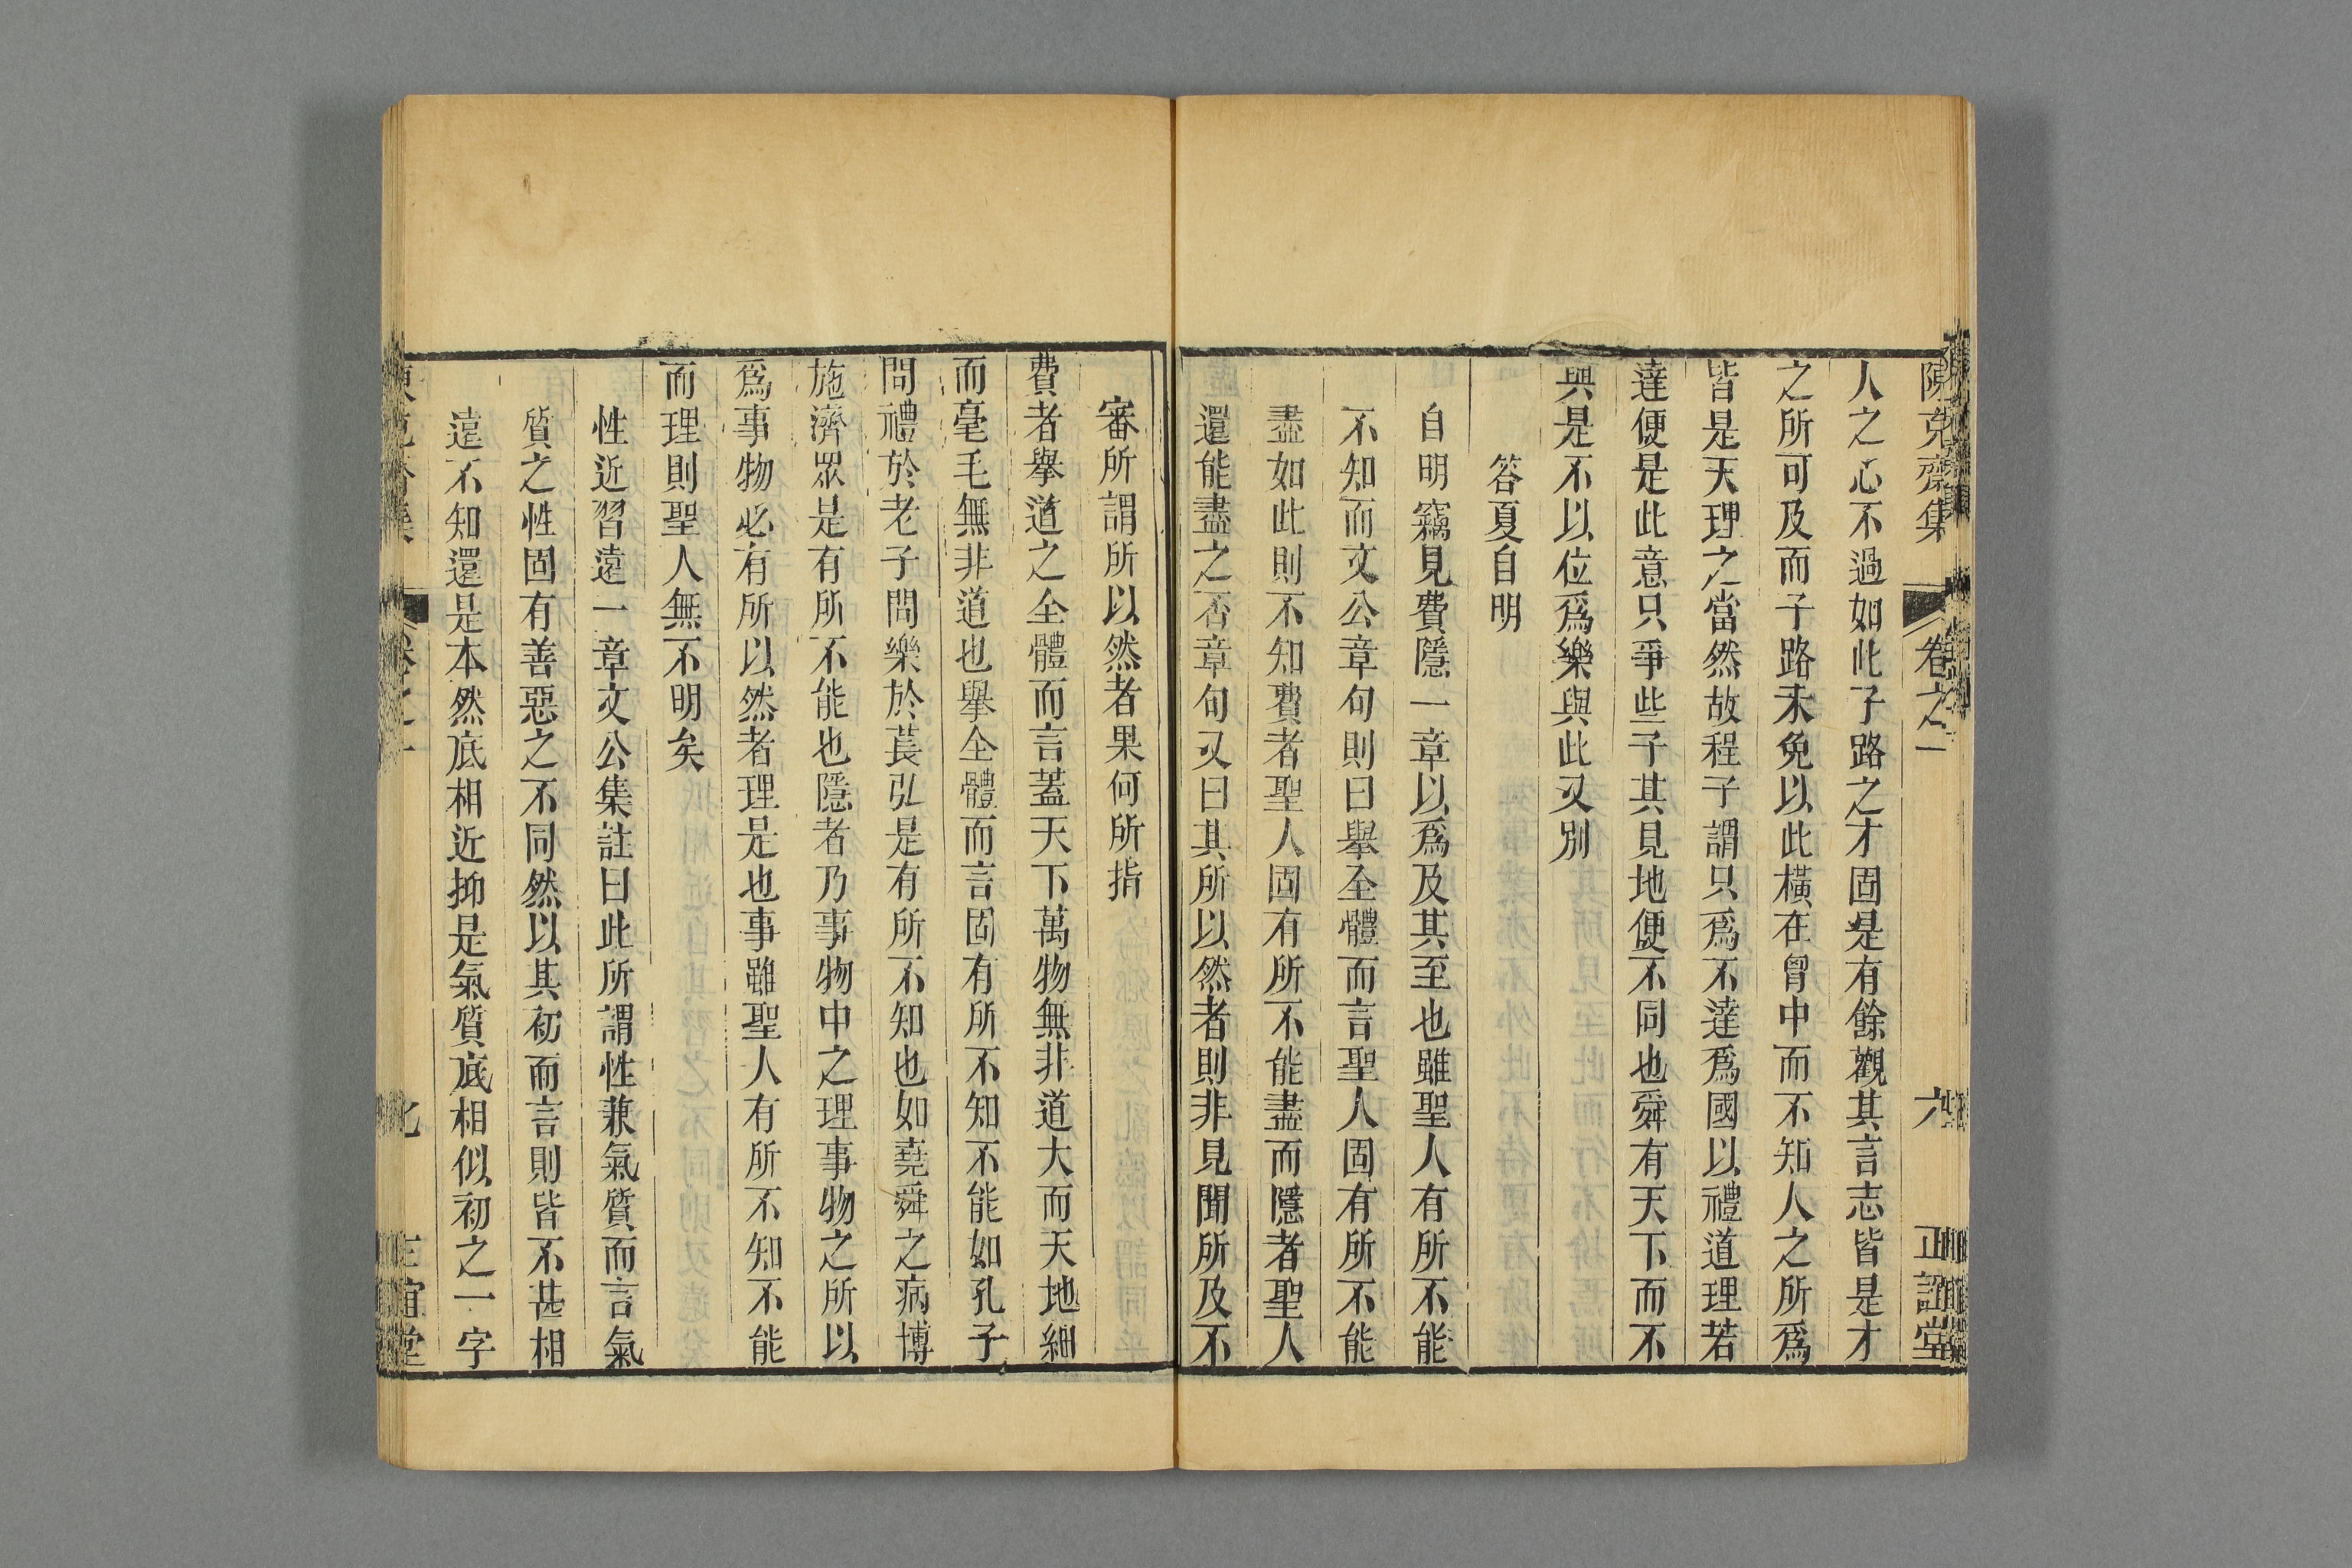 陳克齋集 卷之一 六 正誼堂
人之心不過如此子路之才固是有餘觀其言志皆是才
之所可及而子路未免以此橫在胷中而不知人之所爲
皆是天理之當然故程子謂只爲不達爲國以禮道理若
達便是此意只爭些子其見地便不同也舜有天下而不
與是不以位爲樂與此又別
答夏自明
自明竊見費隱一章以爲及其至也雖聖人有所不能
不知而文公章句則曰舉全體而言聖人固有所不能
盡如此則不知費者聖人固有所不能盡而隱者聖人
還能盡之否章句又曰其所以然者則非見聞所及不
審所謂所以然者果何所指
費者舉道之全體而言蓋天下萬物無非道大而天地細
而毫毛無非道也舉全體而言固有所不知不能如孔子
問禮於老子問樂於萇弘是有所不知也如堯舜之病博
施濟眾是有所不能也隱者乃事物中之理事物之所以
爲事物必有所以然者理是也事雖聖人有所不知不能
而理則聖人無不明矣
性近習遠一章文公集註曰此所謂性兼氣質而言氣
質之性固有善惡之不同然以其初而言則皆不甚相
遠不知還是本然底相近抑是氣質底相似初之一字